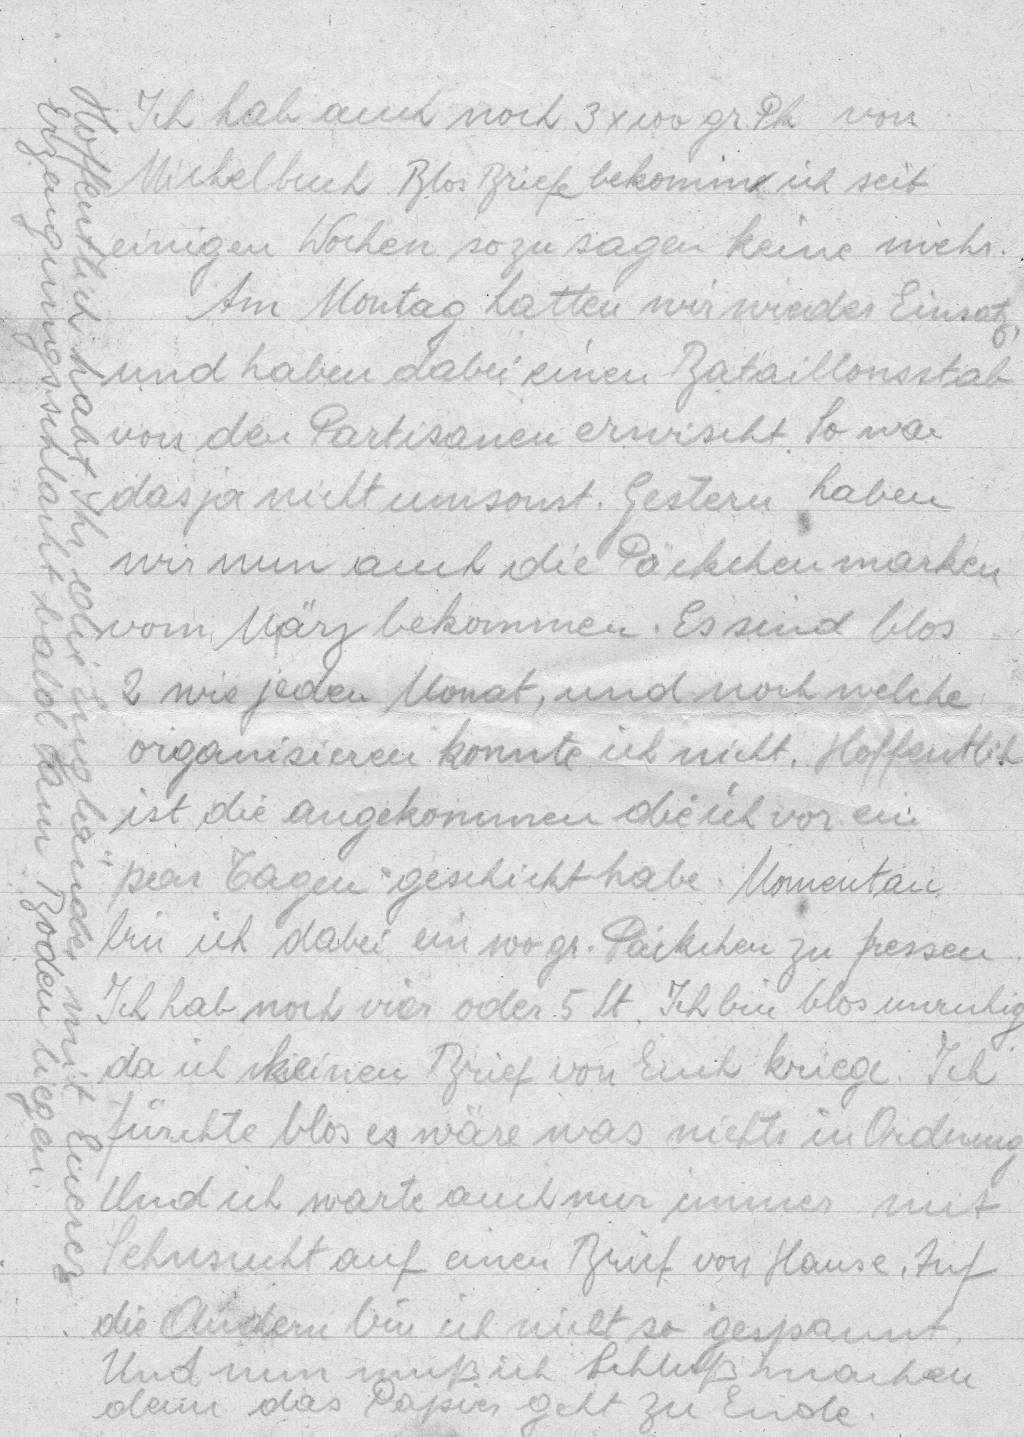 Ich hab auch noch 3 x 100 gr Pk von
Michelbuch Blos Briefe bekomm ich seit
einigen Wochen sozusagen keine mehr.
Am Montag hatten wir wieder Einsatz,
und haben dabei einen Bataillonsstab
von den Partisanen erwischt. So war
das ja nicht umsonst. Gestern haben
wir nun auch die Päckchenmarken
vom März bekommen. Es sind blos
2 wie jeden Monat, und noch welche
organisieren konnte ich nicht. Hoffentlich
ist die angekommen die ich vor ein
paar Tagen geschickt habe. Momentan
bin ich dabei ein 100 gr. Päckchen zu fressen.
Ich hab noch vier oder 5 St. Ich bin blos unruhig
da ich keinen Brief von Euch kriege. Ich
fürchte blos es wäre was nichts in Ordnung
Und ich warte auch nur immer mit
Sehnsucht auf einen Brief von Hause. Auf
die Andern bin ich nicht so gespannt.
Und nun muß ich Schluß machen
denn das Papier geht zu Ende.
Hoffentlich habt Ihr die Engländer mit Eurerer
Erzeugungsschlacht bald am Boden liegen.